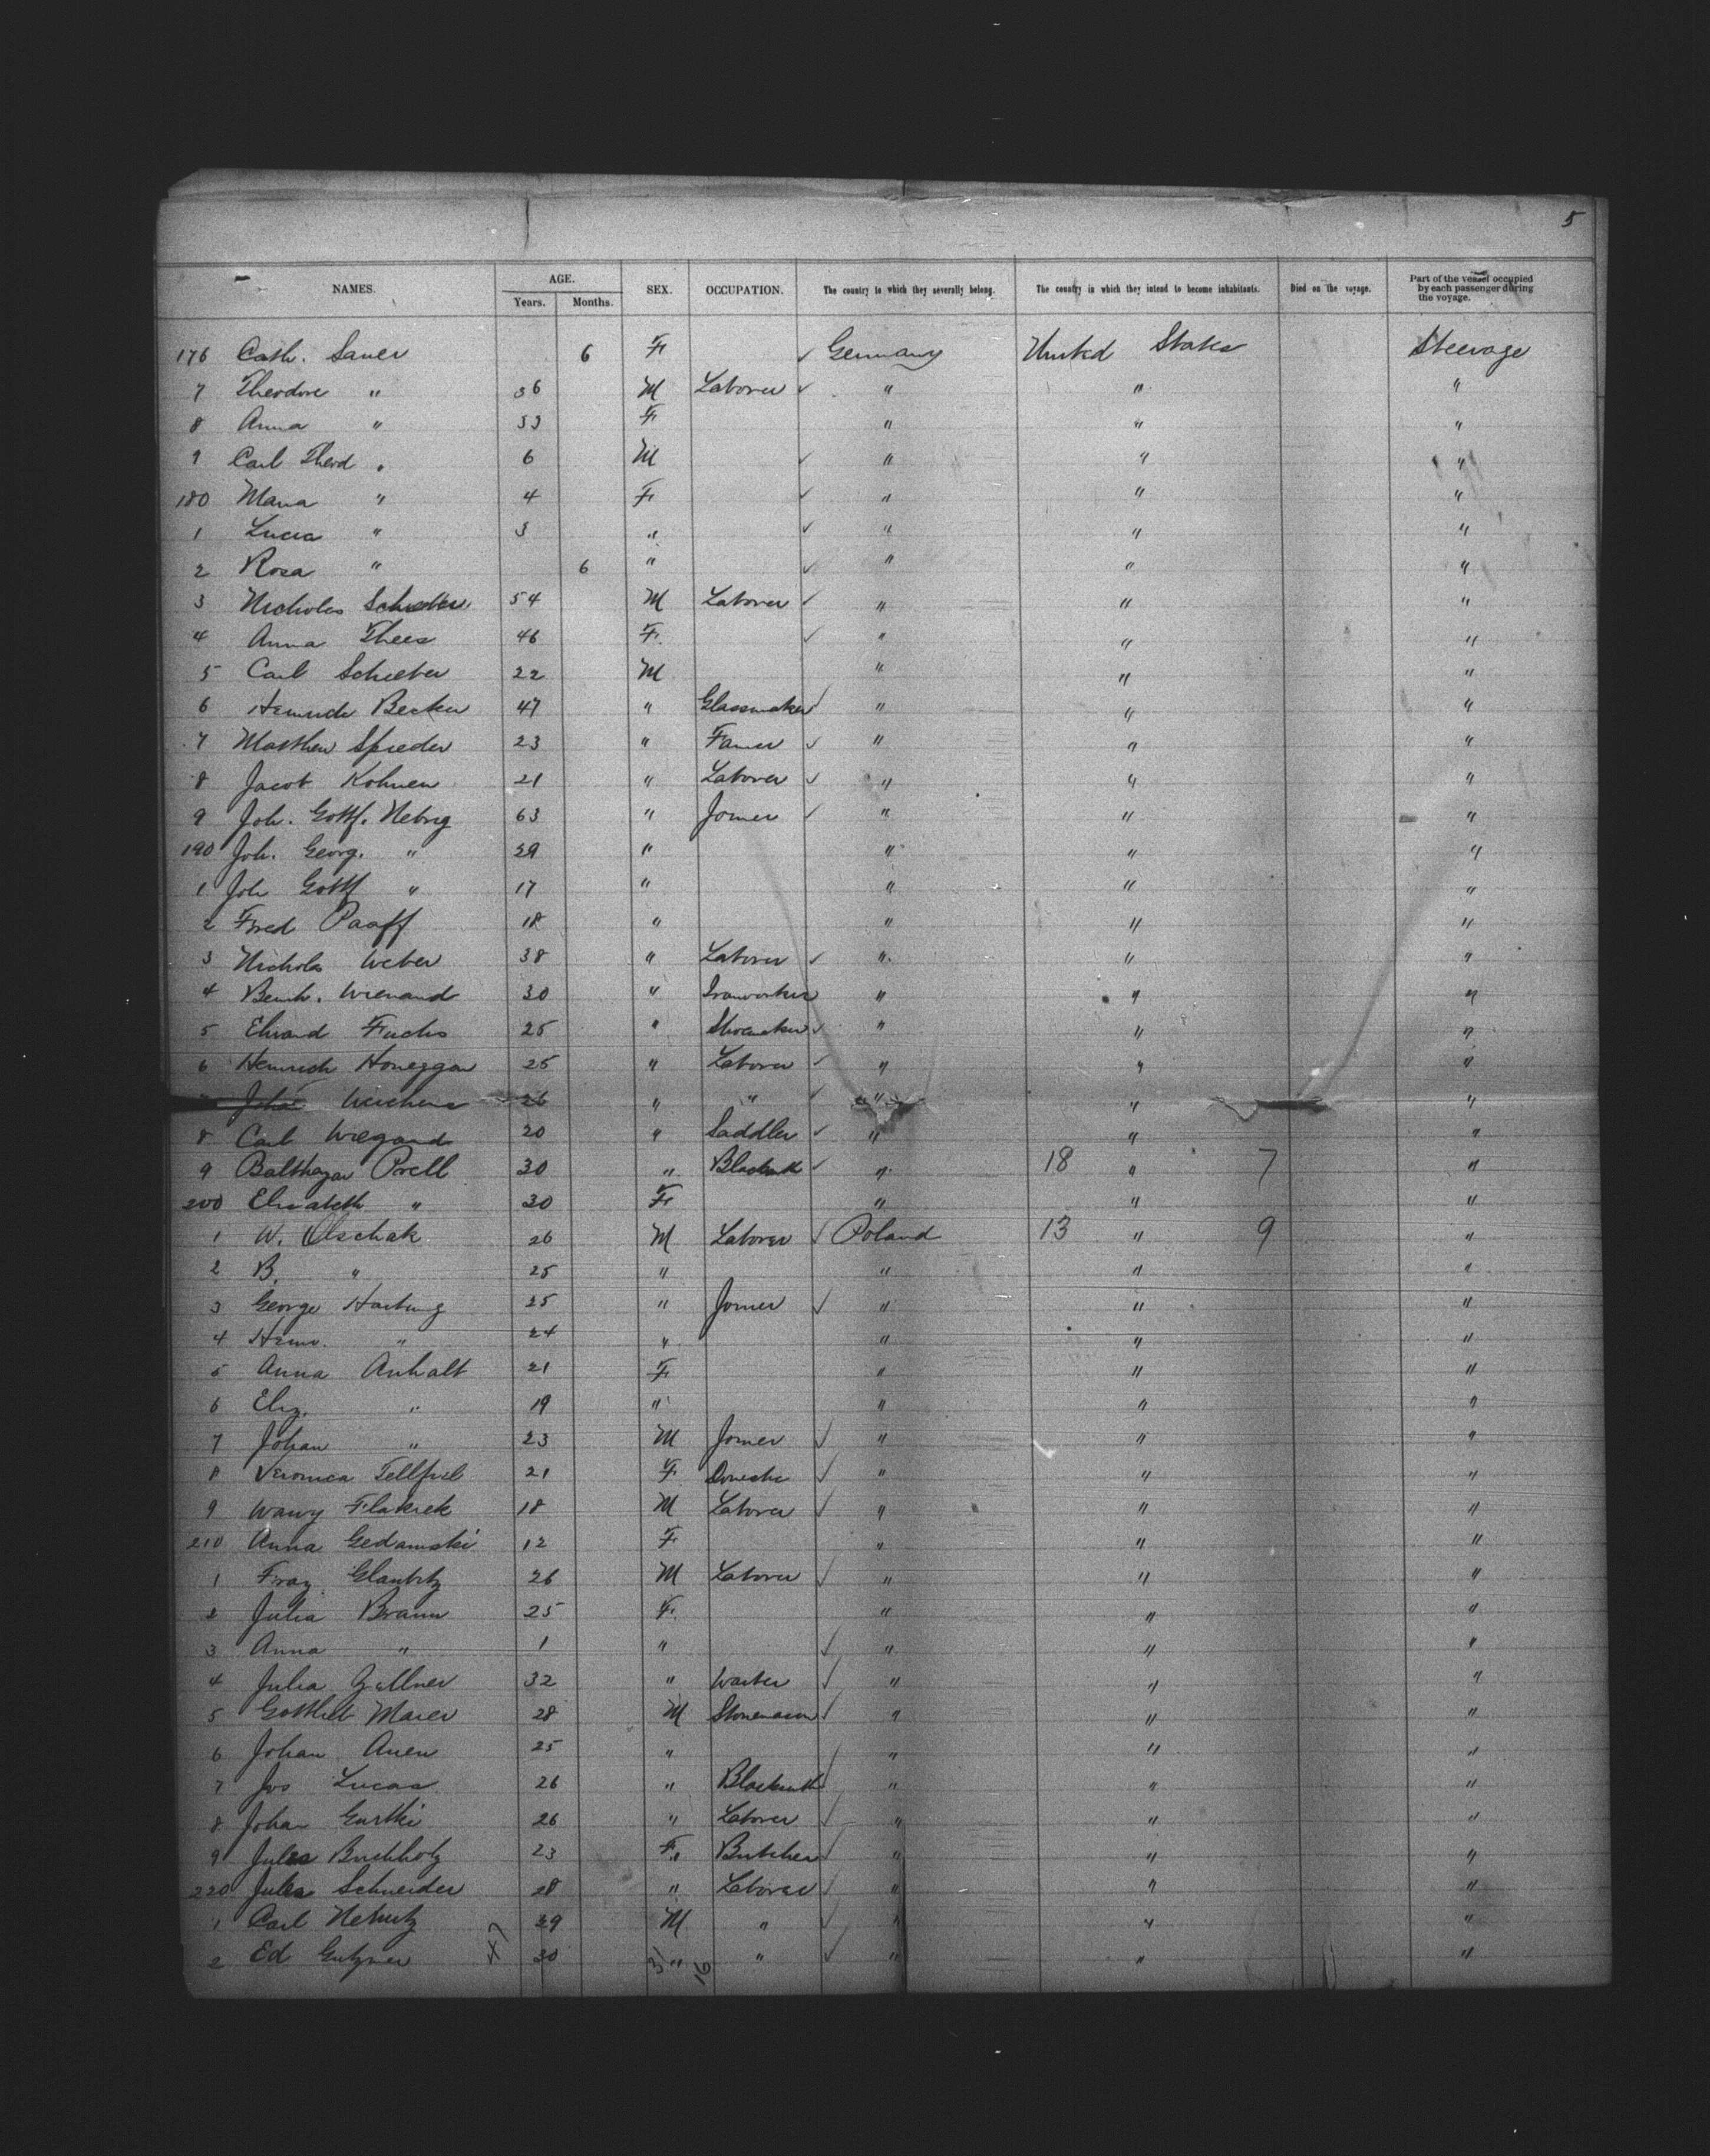 5
NAMES. AGE. Years. Months. SEX. OCCUPATION. The country to which they severally belong. The country in which they intend to become inhabitants. Died on the voyage. Part of the vessel occupied by each passenger during the voyage.
176 Cath. Sauer 6 F Germany United States Steerage
7 Theodore " 36 M Laborer " " "
8 Anna " 33 F " " "
9 Carl Theod " 6 M " " "
180 Maria " 4 F " " "
1 Lucia " 3 " " " "
2 Rosa " 6 " " " "
3 Nicholas 54 M Laborer " " "
4 Anna Thees 46 F. " " "
5 Carl Schieber 22 M " " "
6 Heinrich Becker 47 " Glassmaker " " "
7 Matthew Spieder 23 " Farmer " " "
8 Jacob Kohnen 21 " Laborer " " "
9 Joh. Gottf. Nebrig 63 " Joiner " " "
190 Joh. Georg. " 29 " " " "
1 Joh Gottf " 17 " " " "
2 Fred Paaff 18 " " " "
3 Nicholas Weber 38 " Laborer " " "
4 Bernh. Wienand 30 " Ironworker " " "
5 Edward Fuchs 25 " Shoemaker " " "
6 Heinrich Honeggar 25 " Laborer " " "
26 " " " " "
8 Carl Wiegand 20 " Saddler " " "
9 Balthazar Prell 30 " Blacksmith " 18 " 7 "
200 Elisabeth " 30 F " " "
1 W. Olschak 26 M Laborer Poland 13 " 9 "
2 B. " 25 " " " "
3 George Hartung 25 " Joiner " " "
4 Heinr. " 24 " " " "
5 Anna Anhalt 21 F " " "
6 Eliz. " 19 " " " "
7 Johan " 23 M Joiner " " "
8 Veronica 21 F Domestic " " "
9 Flakrek 18 M Laborer " " "
210 Anna Gedamski 12 F " " "
1 Franz Glaubitz 26 M Laborer " " "
2 Julia Braun 25 F. " " "
3 Anna " 1 " " " "
4 Julia Gallner 32 " " " "
5 Gottlieb Maier 28 M Stonemason " " "
6 Johan Auen 25 " " " "
7 Jos Lucas 26 " Blacksmith " " "
8 Johan Gurtki 26 " Laborer " " "
9 Jules Buchholz 23 F " Butcher " " "
220 Jules Schneider 28 " Laborer " " "
1 Carl 29 M " " " "
2 Ed Gutzner 47 30 31 " 16 " " " "